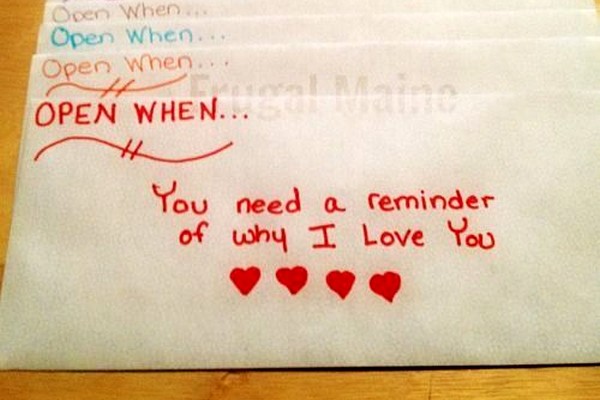 Open When...
Open When...
Open When...
Frugal Maine
OPEN WHEN...
You need a reminder
of why I Love You